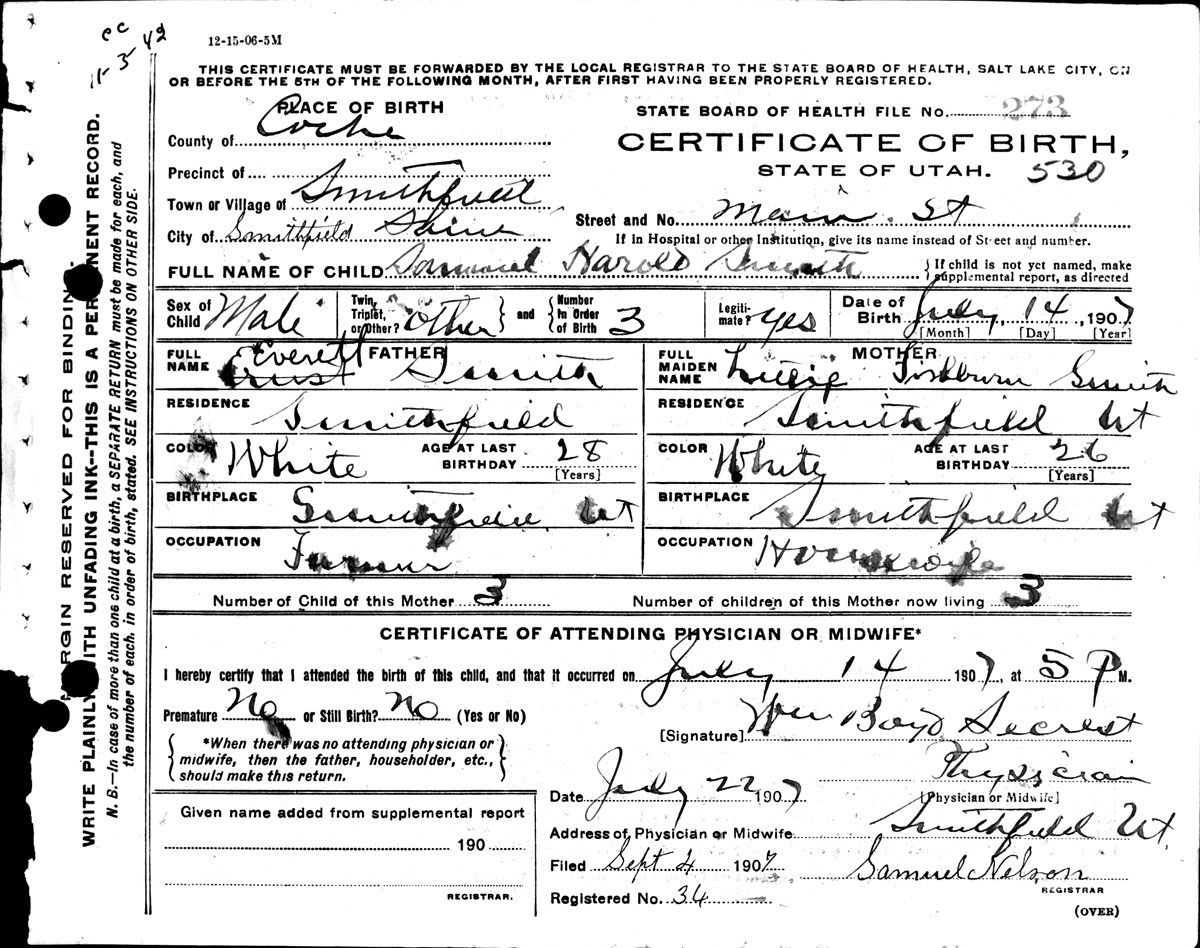 cc
11-5-42
12-15-06-5M
THIS CERTIFICATE MUST BE FORWARDED BY THE LOCAL REGISTRAR TO THE STATE BOARD OF HEALTH, SALT LAKE CITY, ON
OR BEFORE THE 5TH OF THE FOLLOWING MONTH, AFTER FIRST HAVING BEEN PROPERLY REGISTERED.
PLACE OF BIRTH
County of Cache
Precinct of
Town or Village of Smithfield
City of Smithfield
STATE BOARD OF HEALTH FILE No. 273
CERTIFICATE OF BIRTH,
STATE OF UTAH. 530
Street and No. Main St
If in Hospital or other Institution, give its name instead of Street and number.
FULL NAME OF CHILD Samuel Harold Smith { If child is not yet named, make
supplemental report, as directed
Sex of Child Male
Twin, Triplet, or Other? other } and { Number In Order of Birth 3
Legiti-mate? yes
Date of Birth July, 14, 1907
[Month] [Day] [Year]
FATHER
FULL NAME Everett Smith
RESIDENCE Smithfield
COLOR White AGE AT LAST BIRTHDAY 28
[Years]
BIRTHPLACE Smithfield Ut
OCCUPATION Farmer
MOTHER
FULL MAIDEN NAME Lillie Fishburn Smith
RESIDENCE Smithfield Ut
COLOR White AGE AT LAST BIRTHDAY 26
[Years]
BIRTHPLACE Smithfield Ut
OCCUPATION Housewife
Number of Child of this Mother 3 Number of children of this Mother now living 3
CERTIFICATE OF ATTENDING PHYSICIAN OR MIDWIFE*
I hereby certify that I attended the birth of this child, and that it occurred on July 14 1907, at 5 P M.
Premature No or Still Birth? No (Yes or No)
{ *When there was no attending physician or
midwife, then the father, householder, etc.,
should make this return. }
[Signature] Wm Boyd Secrest
Physician
[Physician or Midwife]
Date July 22 1907
Address of Physician or Midwife Smithfield Ut.
Filed Sept 4 1907 Samuel Nelson
REGISTRAR
Registered No. 34
(OVER)
Given name added from supplemental report
190
REGISTRAR.
MARGIN RESERVED FOR BINDING
WRITE PLAINLY WITH UNFADING INK--THIS IS A PERMANENT RECORD.
N. B.--In case of more than one child at a birth, a SEPARATE RETURN must be made for each, and
the number of each, in order of birth, stated. SEE INSTRUCTIONS ON OTHER SIDE.